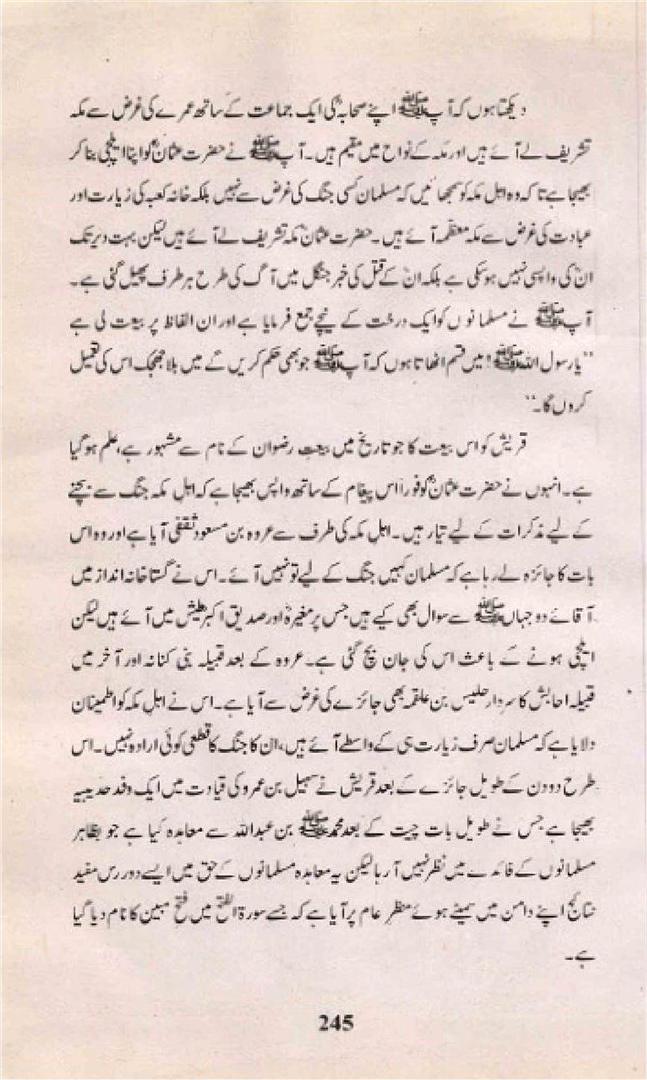 دیکھتا ہوں کہ آپ ﷺ اپنے صحابہؓ کی ایک جماعت کے ساتھ عمرے کی غرض سے مکہ
تشریف لے آئے ہیں اور مکہ کے نواح میں مقیم ہیں۔ آپ ﷺ نے حضرت عثمانؓ کو اپنا ایلچی بنا کر
بھیجا ہے تا کہ وہ اہل مکہ کو سمجھائیں کہ مسلمان کسی جنگ کی غرض سے نہیں بلکہ خانہ کعبہ کی زیارت اور
عبادت کی غرض سے مکہ معظمہ آئے ہیں۔ حضرت عثمانؓ مکہ تشریف لے آئے ہیں لیکن بہت دیر تک
انؓ کی واپسی نہیں ہو سکی ہے بلکہ انؓ کے قتل کی خبر جنگل میں آگ کی طرح ہر طرف پھیل گئی ہے۔
آپ ﷺ نے مسلمانوں کو ایک درخت کے نیچے جمع فرمایا ہے اور ان الفاظ پر بیعت لی ہے
”یا رسول اللہ ﷺ! میں قسم اٹھاتا ہوں کہ آپ ﷺ جو بھی حکم کریں گے میں بلا جھجک اس کی تعمیل
کروں گا۔“
قریش کو اس بیعت کا جو تاریخ میں بیعتِ رضوان کے نام سے مشہور ہے، علم ہو گیا
ہے۔ انہوں نے حضرت عثمانؓ کو فوراً اس پیغام کے ساتھ واپس بھیجا ہے کہ اہل مکہ جنگ سے بچنے
کے لیے مذکرات کے لیے تیار ہیں۔ اہل مکہ کی طرف سے عروہ بن مسعود ثقفی آیا ہے اور وہ اس
بات کا جائزہ لے رہا ہے کہ مسلمان کہیں جنگ کے لیے تو نہیں آئے۔ اس نے گستاخانہ انداز میں
آقائے دو جہاں ﷺ سے سوال بھی کیے ہیں جس پر مغیرہؓ اور صدیق اکبرؓ طیش میں آئے ہیں لیکن
ایلچی ہونے کے باعث اس کی جان بچ گئی ہے۔ عروہ کے بعد قبیلہ بنی کنانہ اور آخر میں
قبیلہ احابش کا سردار حلیس بن علقمہ بھی جائزے کی غرض سے آیا ہے۔ اس نے اہل مکہ کو اطمینان
دلایا ہے کہ مسلمان صرف زیارت ہی کے واسطے آئے ہیں، ان کا جنگ کا قطعی کوئی ارادہ نہیں۔ اس
طرح دو دن کے طویل جائزے کے بعد قریش نے سہیل بن عمرو کی قیادت میں ایک وفد حدیبیہ
بھیجا ہے جس نے طویل بات چیت کے بعد محمد ﷺ بن عبداللہ سے معاہدہ کیا ہے جو بظاہر
مسلمانوں کے فائدے میں نظر نہیں آ رہا لیکن یہ معاہدہ مسلمانوں کے حق میں ایسے دور رس مفید
نتائج اپنے دامن میں سمیٹے ہوئے منظر عام پر آیا ہے کہ جسے سورۃ الفتح میں فتح مبین کا نام دیا گیا
ہے۔
245